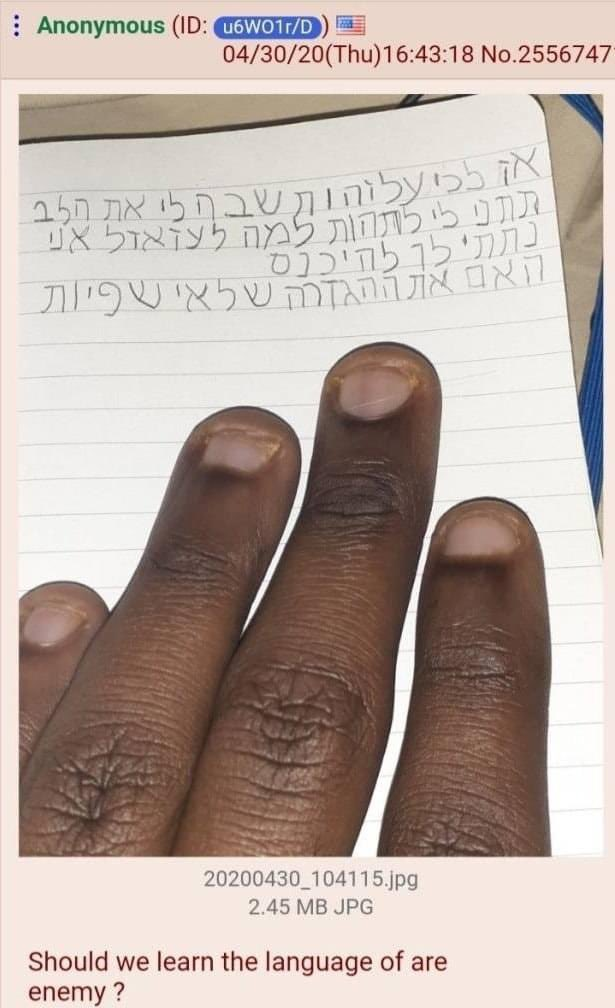 Anonymous (ID: u6WO1r/D)
04/30/20(Thu)16:43:18 No.2556747
אז לכי את הלב
תתני לי לתהות למה לעזאזל אני
נתתי לך להיכנס
האם את ההגדרה שלאי שפיות
20200430_104115.jpg
2.45 MB JPG
Should we learn the language of are
enemy ?